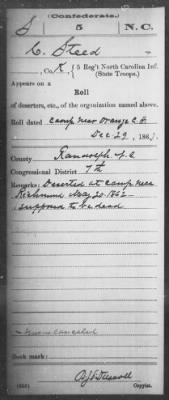 (Confederate.)
S 5 N.C.
C. Steed
, Co. K, { 5 Reg't North Carolina Inf.
(State Troops.)
Appears on a
Roll
of deserters, etc., of the organization named above.
Roll dated Camp near Orange C. H.
Dec 29, 1863.
County Randolph N.C
Congressional District 7th
Remarks: Deserted at camp near
Richmond May 30 1862
supposed to be dead
canceled
Book mark:
Copyist.